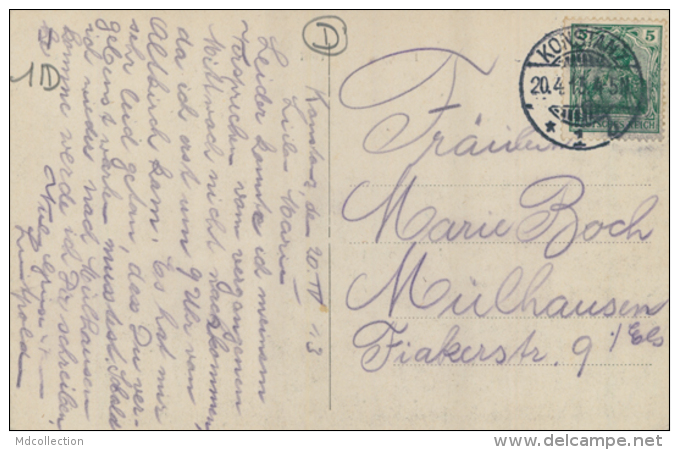 Konstanz, den 20. IV 13
Liebe Marie
Leider konnte ich meinem
Versprechen vom vergangenen
Mittwoch nicht nachkommen,
da ich erst um 9 Uhr von
Altkirch kam. Es hat mir
sehr leid getan, dass Du ver-
gebens warten musstest. Sobald
ich wieder nach Mülhausen
komme werde ich Dir schreiben.
1D
D
KONSTANZ
20.4.13.4-5N
* 1 b
5
DEUTSCHES REICH
Fräulein
Marie Boch
Mülhausen
Fiakerstr. 9 i/Els
Mdcollection